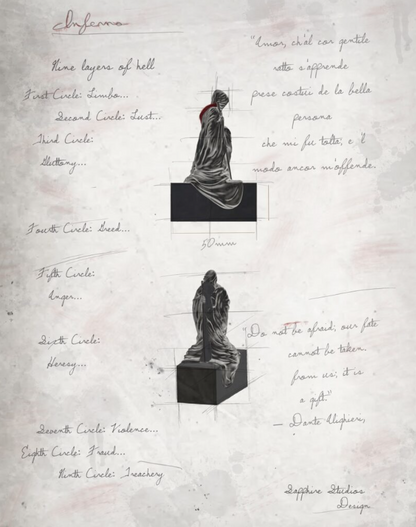 Inferno
Nine layers of hell
First Circle: Limbo...
Second Circle: Lust...
Third Circle:
Gluttony...
Fourth Circle: Greed...
Fifth Circle:
Anger...
Sixth Circle:
Heresy...
Seventh Circle: Violence...
Eighth Circle: Fraud...
Ninth Circle: Treachery
"Amor, ch'al cor gentile
ratto s'apprende
prese costui de la bella
persona
che mi fu tolta; e 'l
modo ancor m'offende.
50mm
"Do not be afraid; our fate
cannot be taken
from us; it is
a gift."
— Dante Alighieri,
Sapphire Studios
Design